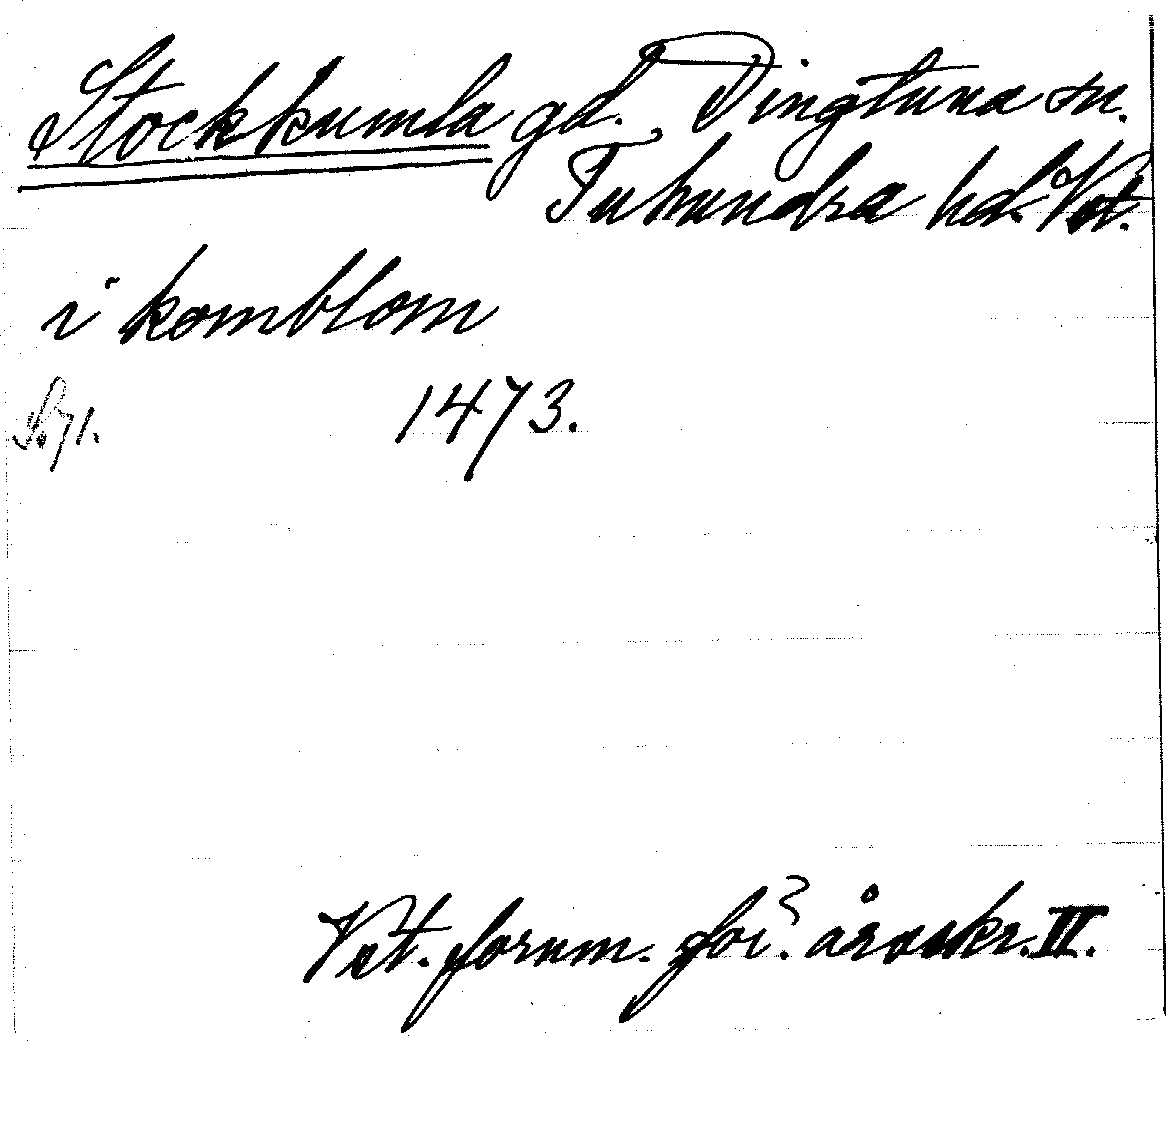 Stockkumla gd. Dingtuna sn.
Tuhundra hd. Vst.
i komblom
S. 71. 1473.
Vst. fornm. för. årsskr. II.